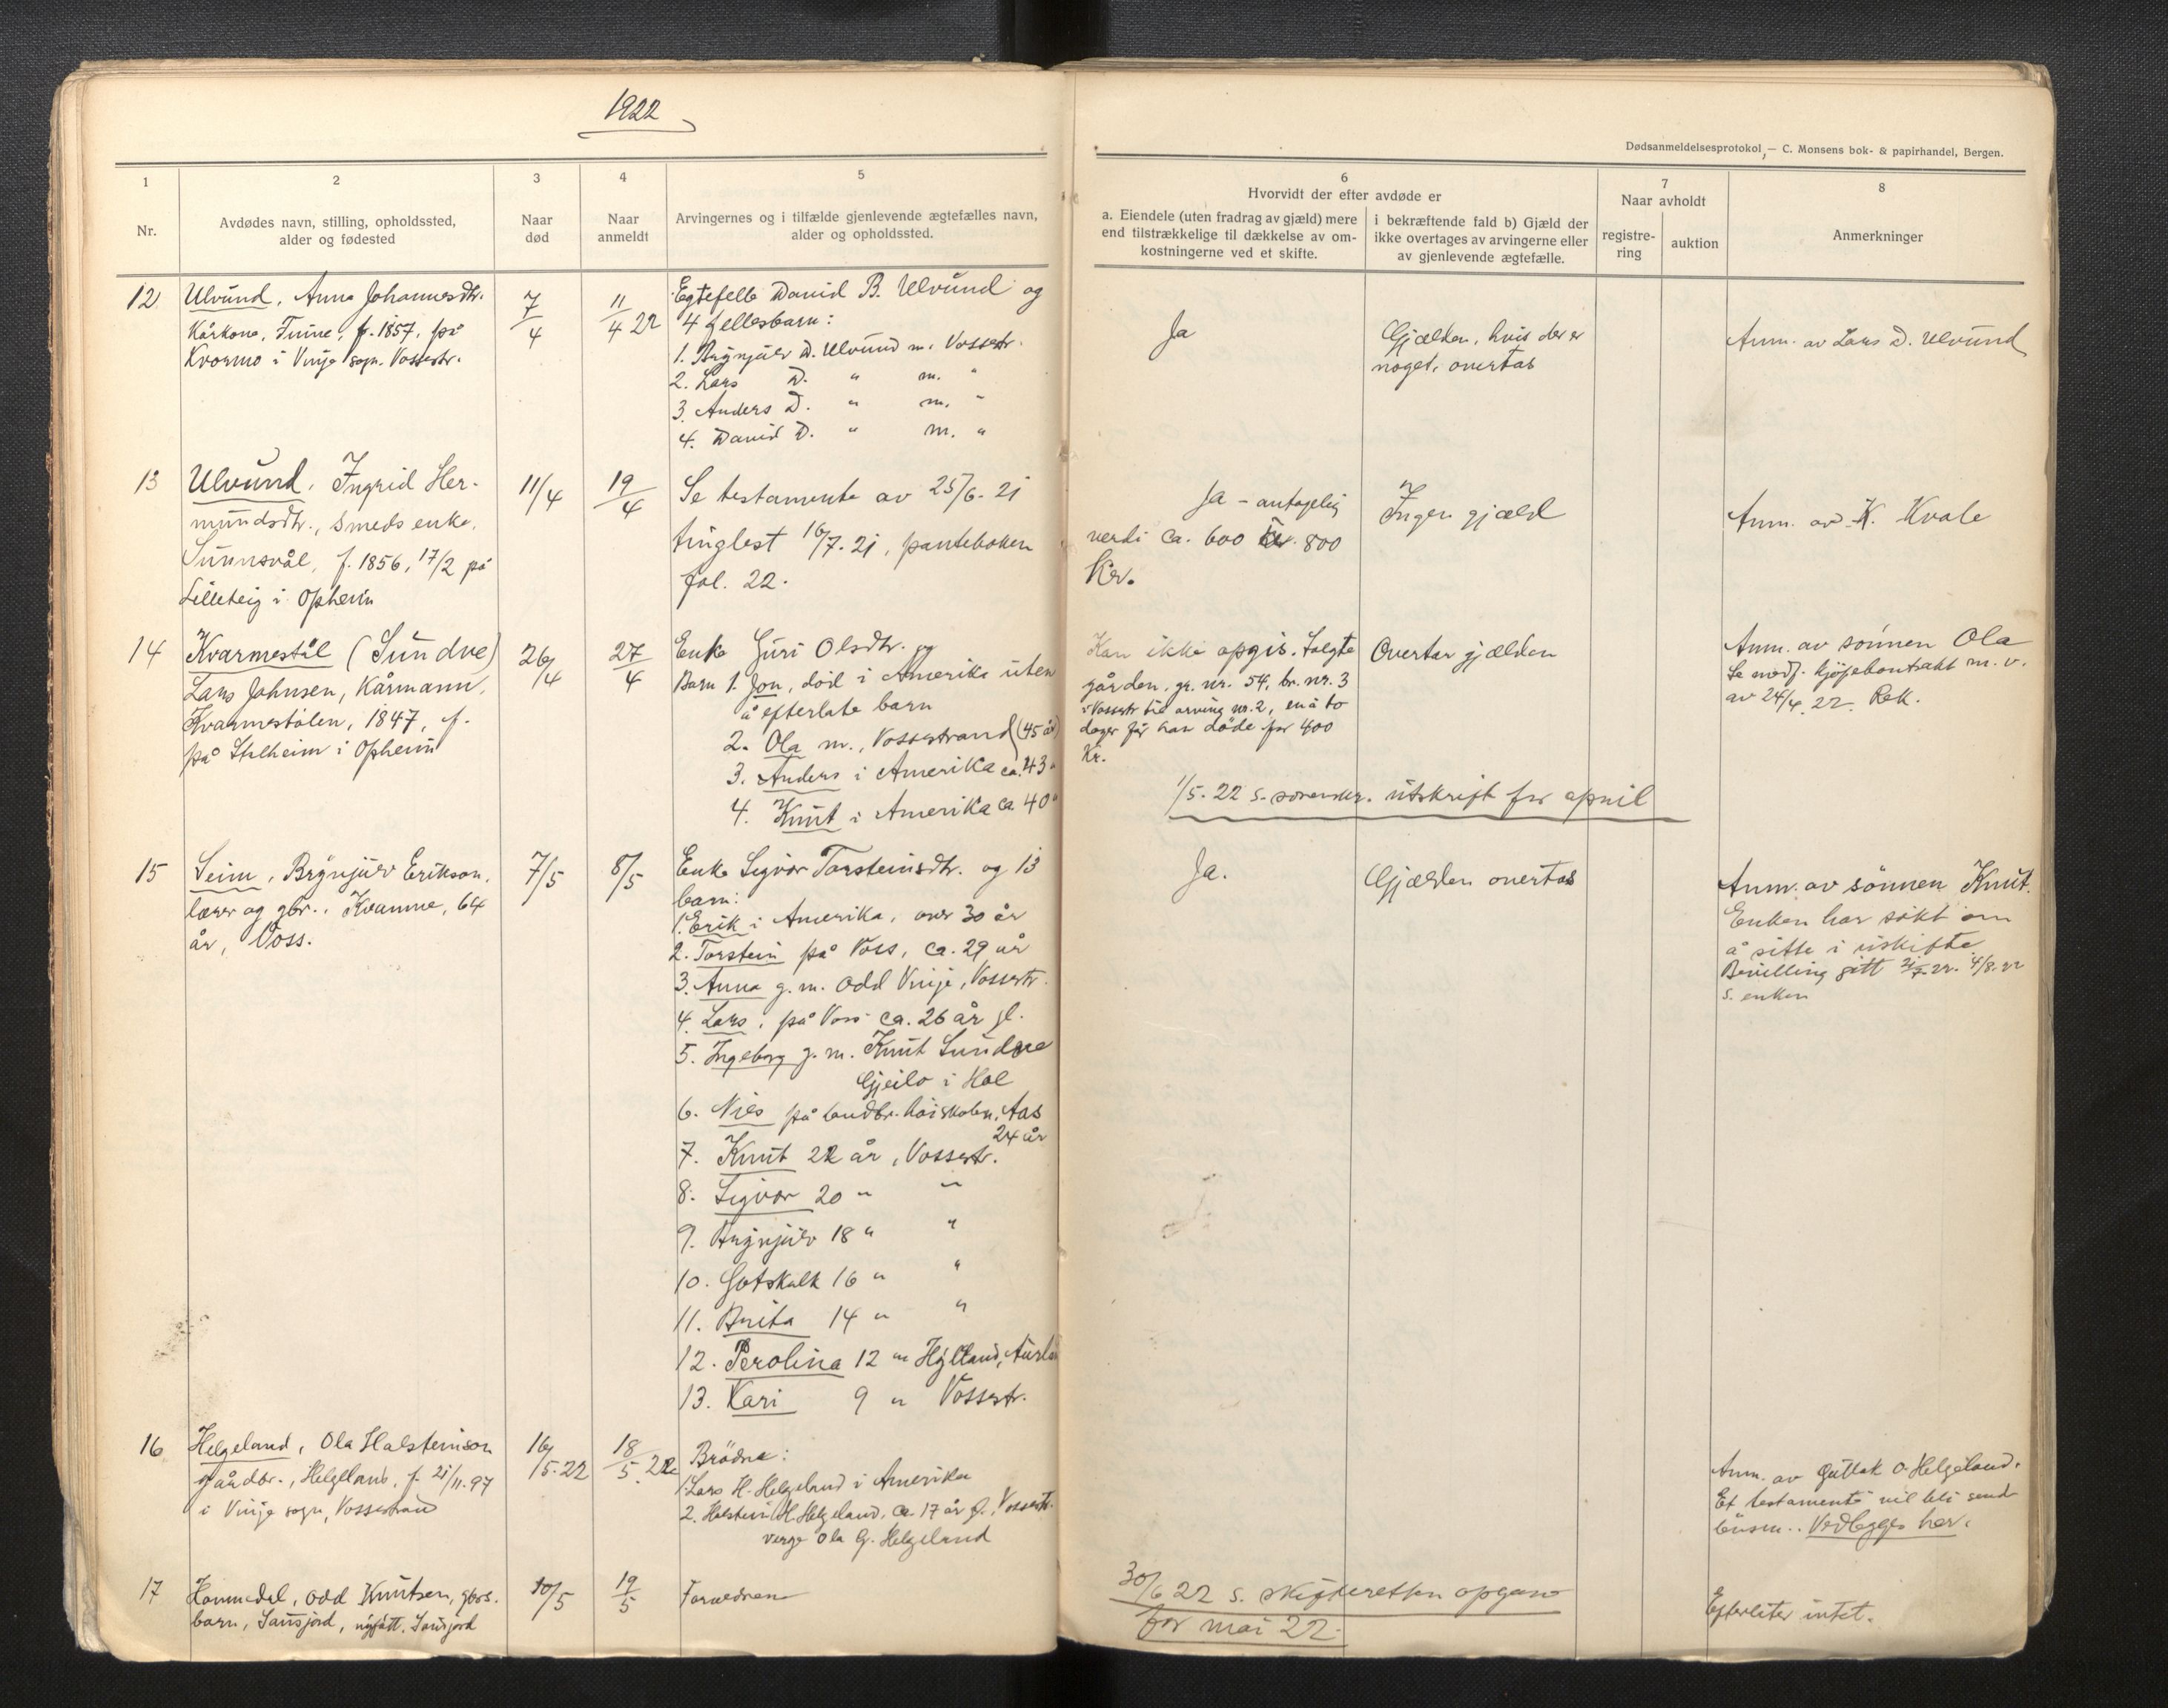 1922
Dødsanmeldelsesprotokol, — C. Monsens bok- & papirhandel, Bergen.
1
Nr.
2
Avdødes navn, stilling, opholdssted,
alder og fødested
3
Naar
død
4
Naar
anmeldt
5
Arvingernes og i tilfælde gjenlevende ægtefælles navn,
alder og opholdssted.
6
Hvorvidt der efter avdøde er
a. Eiendele (uten fradrag av gjæld) mere
end tilstrækkelige til dækkelse av om-
kostningerne ved et skifte.
i bekræftende fald b) Gjæld der
ikke overtages av arvingerne eller
av gjenlevende ægtefælle.
7
Naar avholdt
registre-
ring
auktion
8
Anmerkninger
12
Ulvund, Anna Johannesdtr.
Kårkone, Tvine, f. 1857, på
Kvormo i Vinje sogn. Vossestr.
7/4
11/4 22
Egtefelle David B. Ulvund og
4 fellesbarn:
1. Brynjulv D. Ulvund m. Vossestr.
2. Lars D. " m. "
3. Anders D. " m. "
4. David D. " m. "
Ja
Gjælden, hvis der er
noget, overtas
Anm. av Lars D. Ulvund
13
Ulvund, Ingrid Her-
mundsdtr., smeds enke,
Sunnsvål, f. 1856, 17/2 på
Lilleteig i Opheim
11/4
19/4
Se testamente av 25/6. 21
tinglest 16/7. 21, panteboken
fol. 22.
Ja - antagelig
verdi ca. 600 800
Kr.
Ingen gjæld
Anm. av K. Kvale
14
Kvarmestøl (Sundve)
Lars Johnsen, Kårmann,
Kvarmestølen, 1847, f.
på Stalheim i Opheim
26/4
27/4
Enke Guri Olsdtr. og
Barn 1. Jon, död i Amerika uten
å efterlate barn
2. Ola m., Vossestrand (45 år)
3. Anders i Amerika ca. 43 "
4. Knut i Amerika ca 40 "
Kan ikke opgis. Solgte
gården, gr. nr. 54, br. nr. 3
i Vossestr til arving nr. 2, en à to
dager før han döde for 400
Kr.
Overtar gjælden
Anm. av sønnen Ola
Se medf. kjøpekontrakt m. v.
av 24/4. 22. Rek.
1/5. 22 s. sorenskr. utskrift for april
15
Seim, Brynjulv Erikson,
lærer og gbr., Kvamme, 64
år, Voss.
7/5
8/5
Enke Sigvor Torsteinsdtr. og 13
barn:
1. Erik i Amerika, over 30 år
2. Torstein på Voss, ca. 29 år
3. Anna g. m. Odd Vinje, Vossestr.
4. Lars, på Voss ca. 26 år gl.
5. Ingeborg g. m. Knut Sundbre
Gjeilo i Hol
6. Nils på landbr. høiskolen, Aas
24 år
7. Knut 22 år, Vossestr.
8. Sigvor 20 " "
9. Brynjulv 18 " "
10. Gotskalk 16 " "
11. Brita 14 " "
12. Perolina 12 " Hylland, Aurla
13. Kari 9 " Vossestr.
Ja.
Gjælden overtas
Anm. av sönnen Knut.
Enken har søkt om
å sitte i uskifte
Bevilling gitt 21/7. 22. 4/8. 22
s. enken
16
Helgeland, Ola Halsteinson
gårdbr., Helgeland, f. 21/11. 97
i Vinje sogn, Vossestrand
16/5. 22
18/5. 22
Brödre:
1. Lars H. Helgeland i Amerika
2. Halstein H. Helgeland, ca 17 år gl., Vossestr.
verge Ola G. Helgeland
Anm. av Gullak O. Helgeland.
Et testamente vil bli send
lensm.. Vedlegges her.
17
Hommedal, Odd Knutsen, gbrs.
barn, Tausjord, nyfött, Tausjord
10/5
19/5
Forældrene
Efterlater intet.
30/6 22 s. skifteretten opgave
for mai 22.